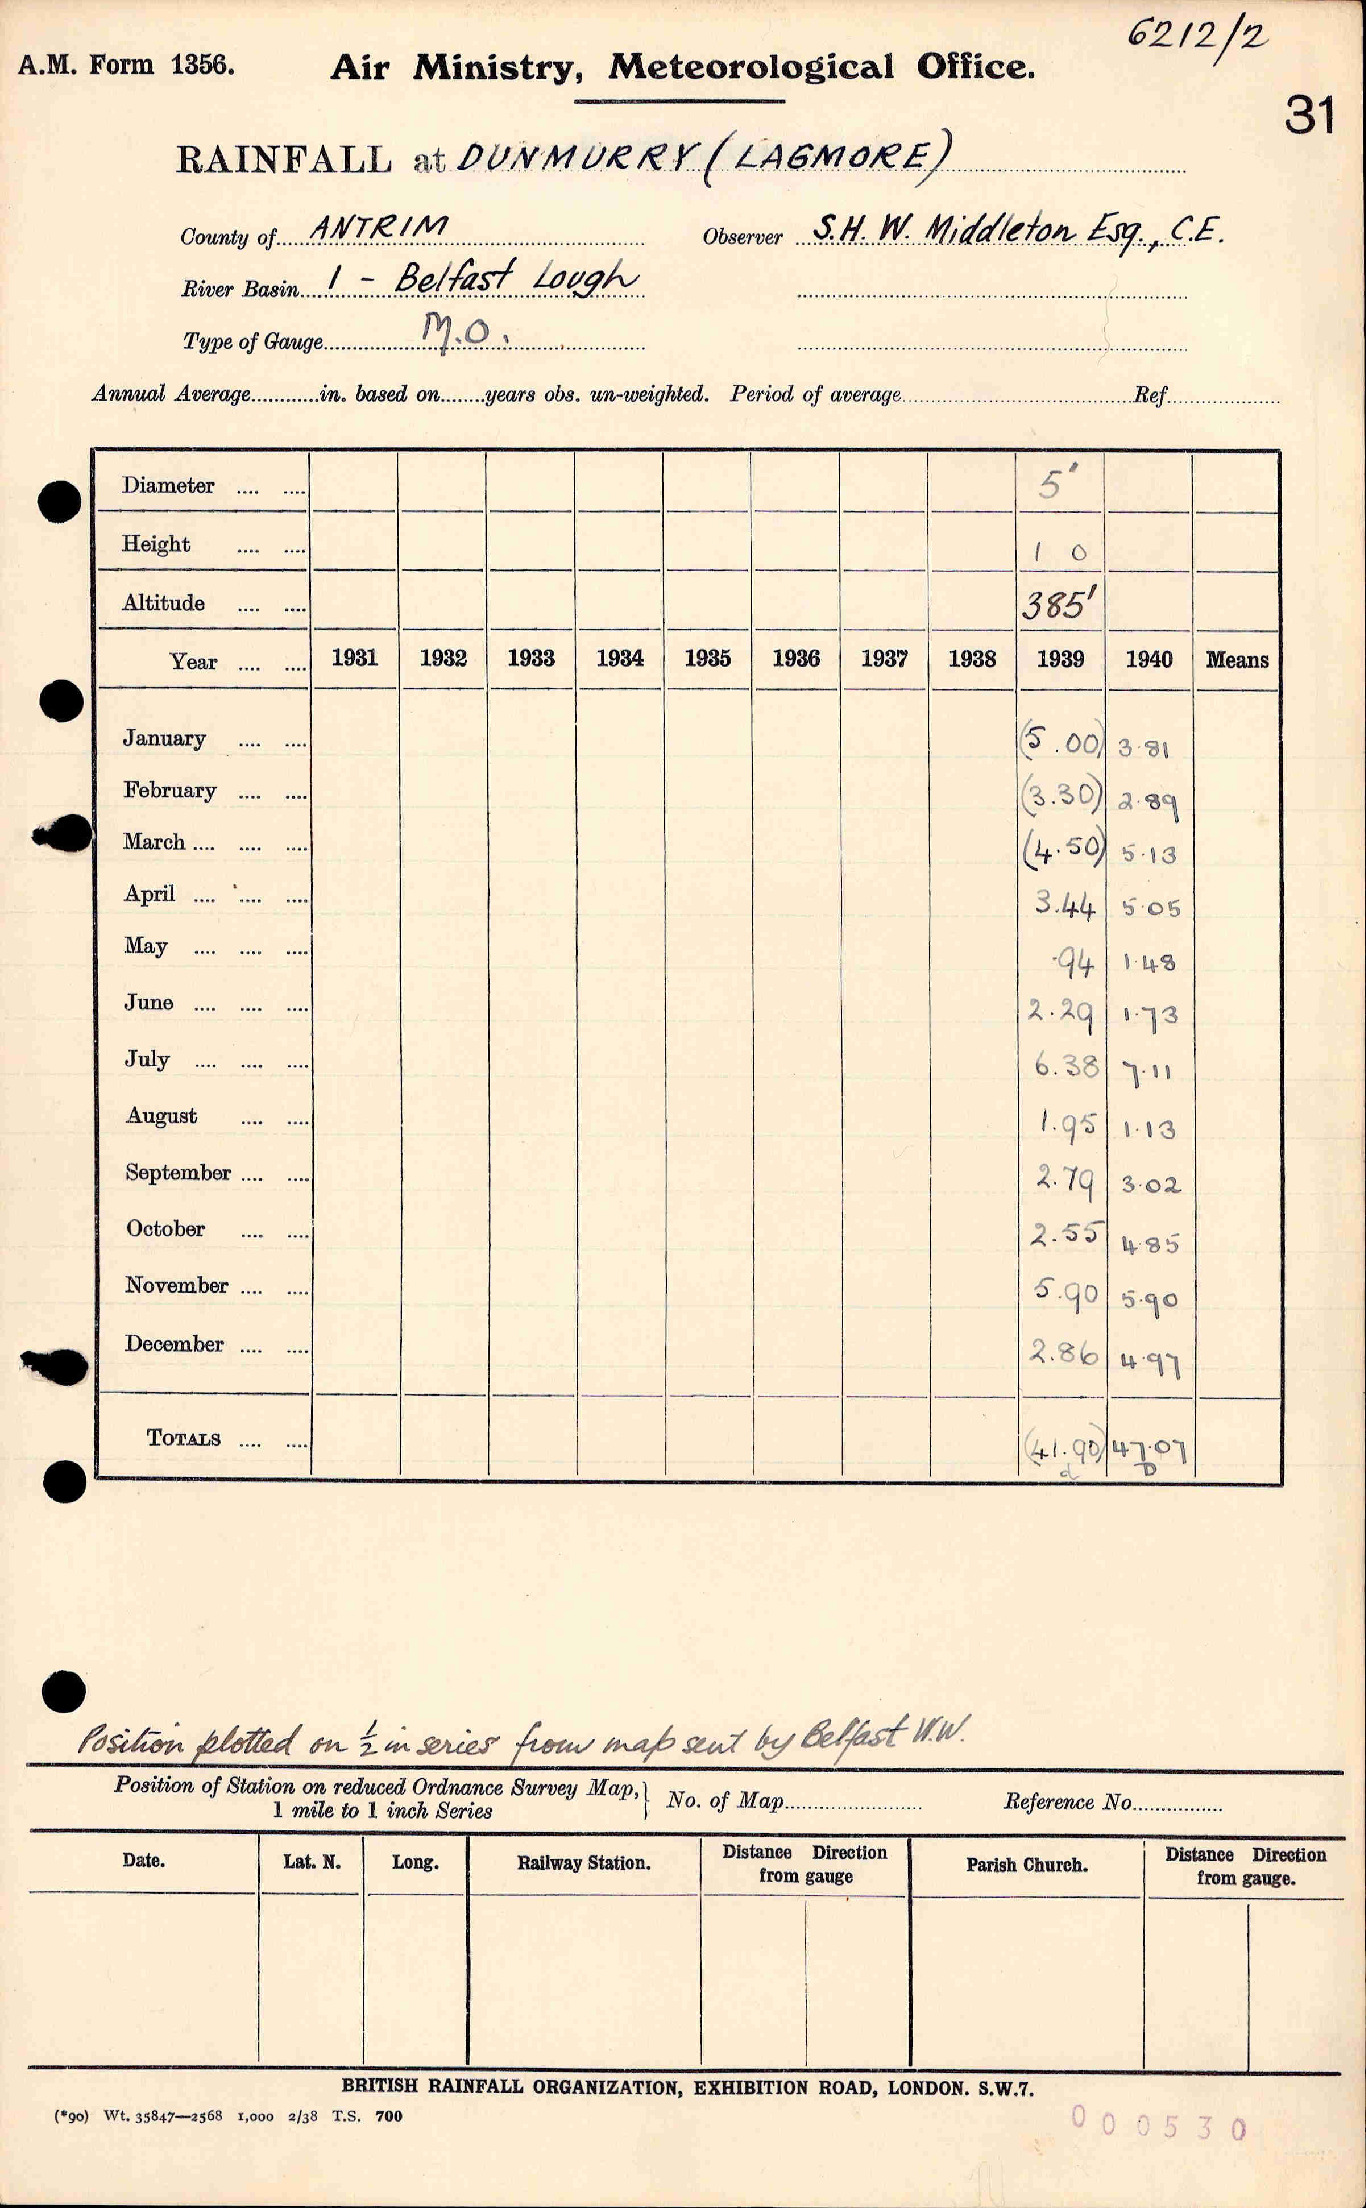 6212/2
A.M. Form 1356. Air Ministry, Meteorological Office.
31
RAINFALL at DUNMURRY (LAGMORE)
County of ANTRIM Observer S.H. W. Middleton Esq., C.E.
River Basin 1 - Belfast Lough
Type of Gauge M.O.
Annual Average............in. based on........years obs. un-weighted. Period of average.......... Ref..........
Diameter .... .... 5'
Height .... .... 1 0
Altitude .... .... 385'
Year .... .... 1931 1932 1933 1934 1935 1936 1937 1938 1939 1940 Means
January .... .... (5.00) 3.81
February .... .... (3.30) 2.89
March .... .... .... (4.50) 5.13
April .... .... .... 3.44 5.05
May .... .... .... .94 1.48
June .... .... .... 2.29 1.73
July .... .... .... 6.38 7.11
August .... .... 1.95 1.13
September .... .... 2.79 3.02
October .... .... 2.55 4.85
November .... .... 5.90 5.90
December .... .... 2.86 4.97
TOTALS .... .... (41.90) 47.07
d D
Position plotted on ½ in series from map sent by Belfast W.W.
Position of Station on reduced Ordnance Survey Map, 1 mile to 1 inch Series } No. of Map.......... Reference No..........
Date. Lat. N. Long. Railway Station. Distance Direction from gauge Parish Church. Distance Direction from gauge.
BRITISH RAINFALL ORGANIZATION, EXHIBITION ROAD, LONDON. S.W.7.
(*90) Wt. 35847—2568 1,000 2/38 T.S. 700
000530